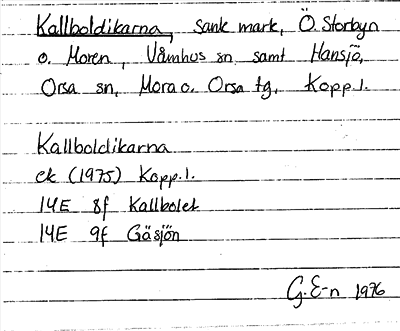 Kallboldikarna, sank mark, Ö. Storbyn
o. Moren, Våmhus sn samt Hansjö,
Orsa sn, Mora o. Orsa tg, Kopp.l.
Kallboldikarna
ek (1975) Kopp.l.
14E 8f Kallbolet
14E 9f Gäsjön
G. E-n 1976